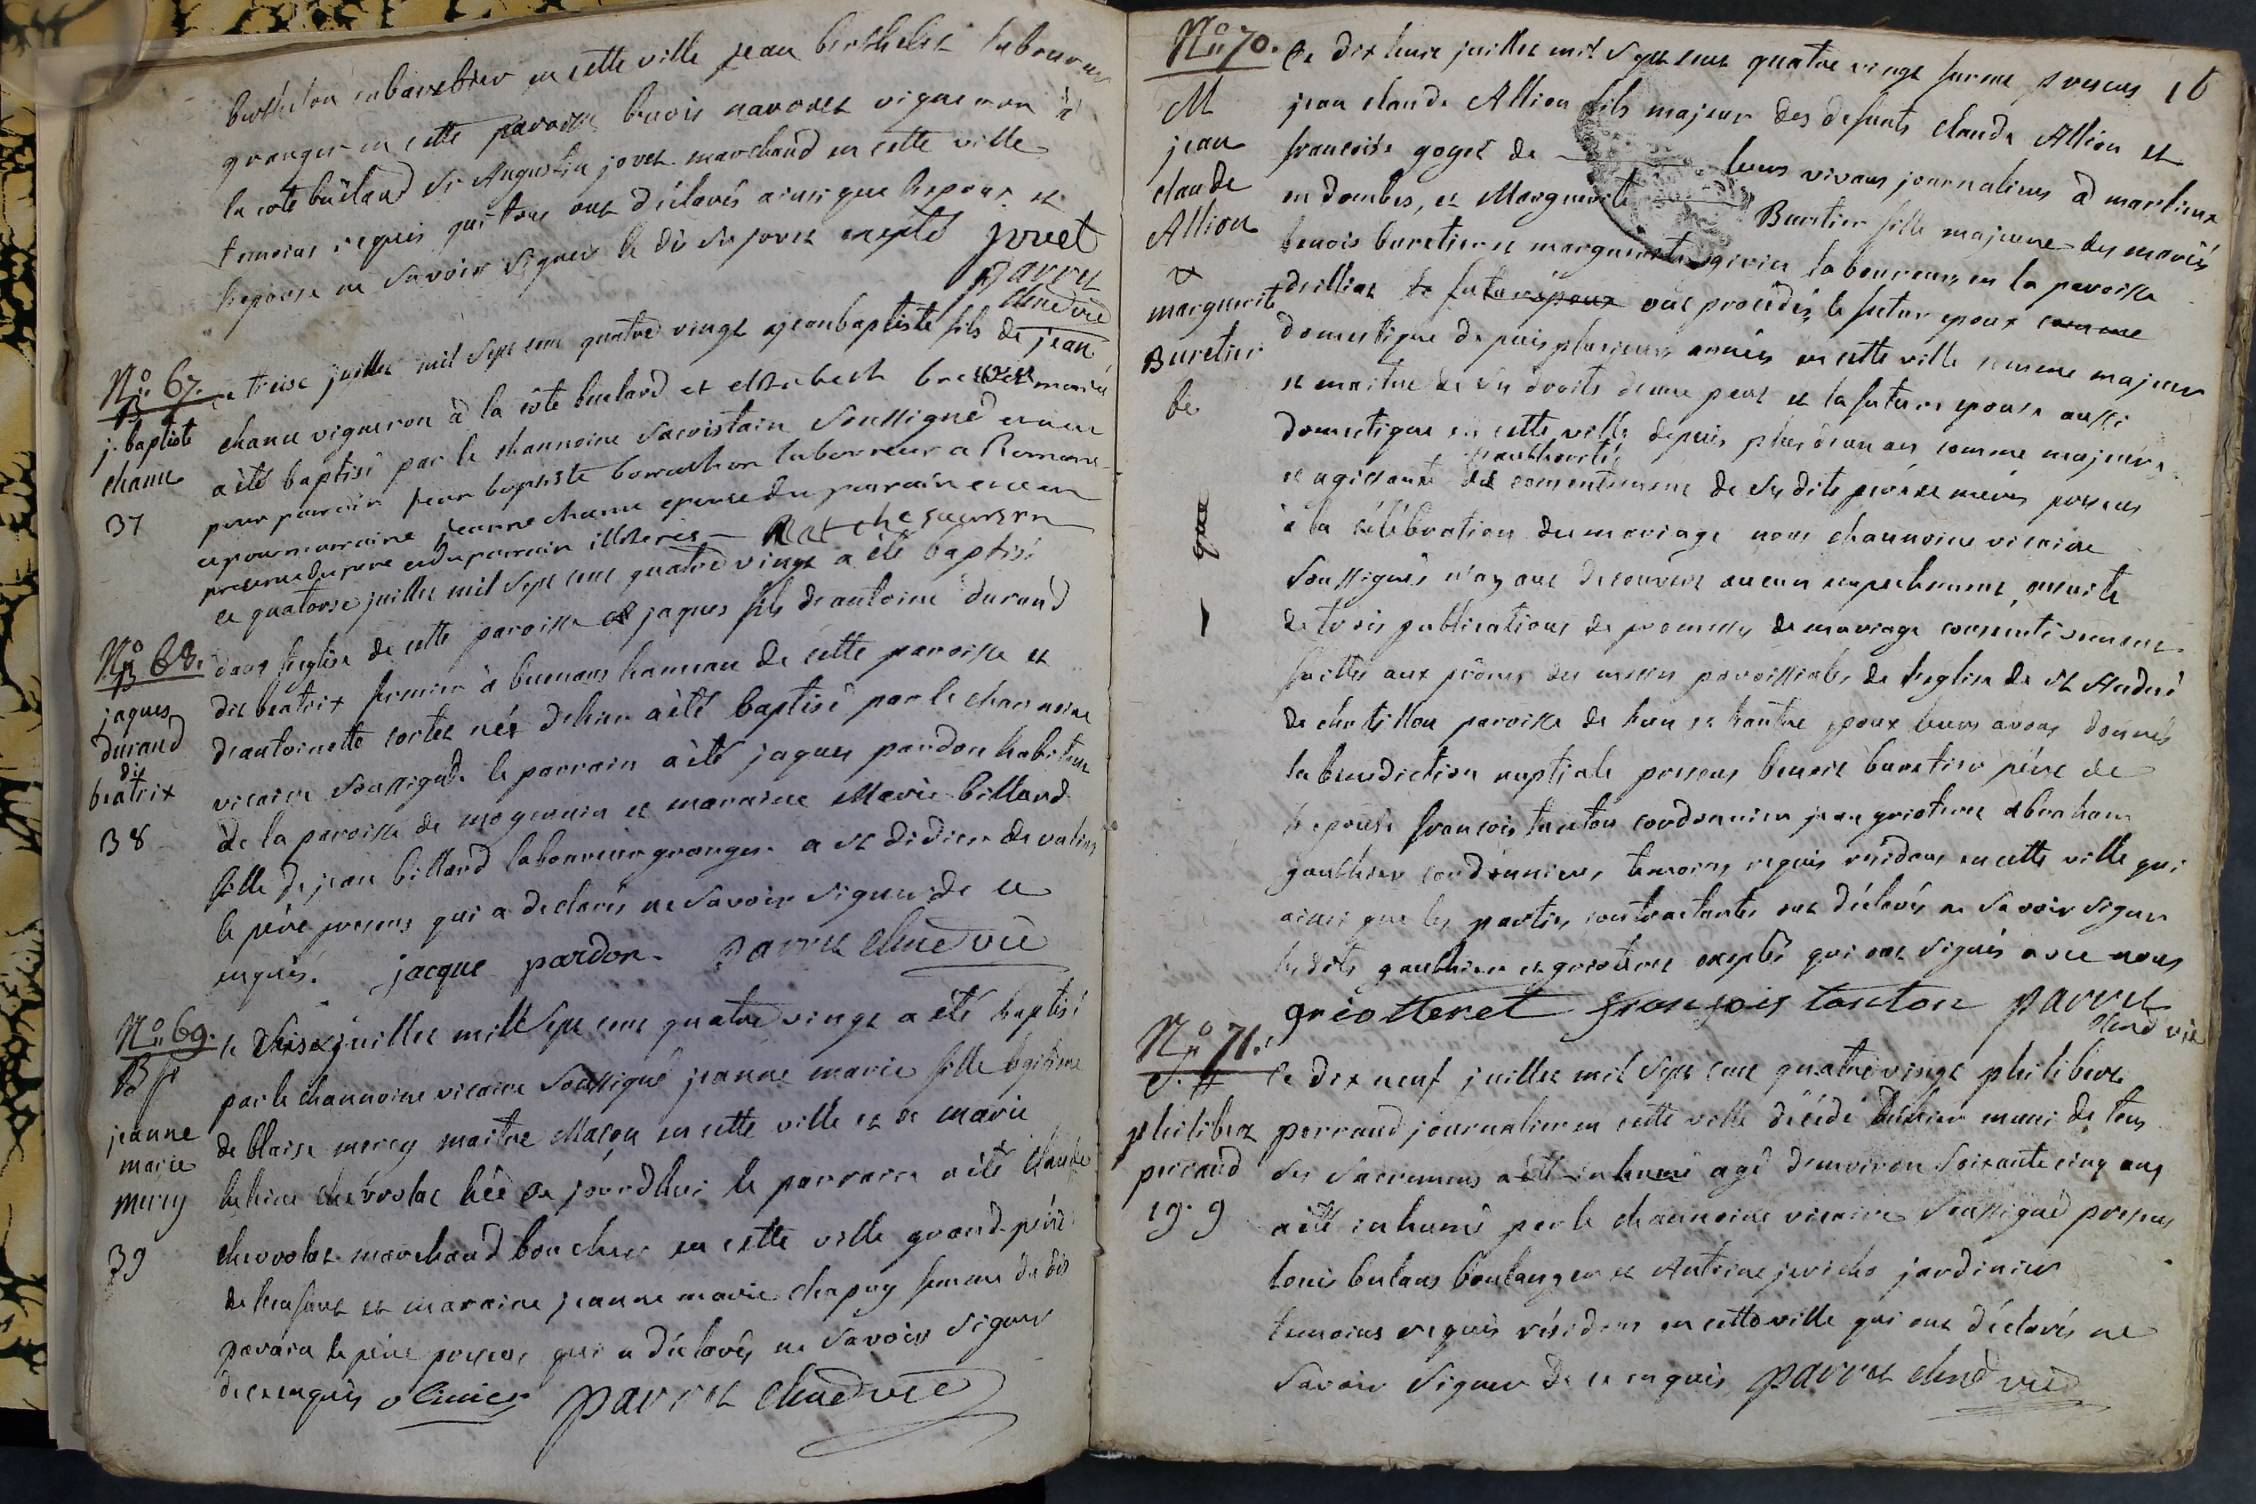 berthelon cabaretier en cette ville jean berthelet laboureur
granger en cette paroisse benois navoret vigneron à
la cote buelard Sr Augustin jovet marchand en cette ville
temoins requis qui tous ont déclarés ainsi que lepoux et
lepouse ne savoir signer le dit Sr jovet excepté jovet
parret
chne vic
No 67. ce treise juillet mil sept cent quatre vingt jean baptiste fils de jean
B
j. baptiste
chanu
37
chanu vigneron à la côte buelard et elizabeth mariés
a été baptisé par le channoine sacristain soussigné
pour parrain jean baptiste laboureur a Romans
et pour marraine jeanne chanu epouse du parrain
presence du pere et du parrain illiteres
No 68. ce quatorse juillet mil sept cent quatre vingt a été baptisé
B
jaques
durand
dit
beatrix
38
dans l'eglise de cette paroisse jaques fils de antoine durand
dit beatrix fermier à buenans hameau de cette paroisse et
d'antoinette cortet né d'hier a été baptisé par le channoine
vicaire soussigné le parrain a été jaques pardon habitant
de la paroisse de mogenein et maraine Marie billard
fille de jean billard laboureur granger a st didier de valins
le père present qui a declaré ne savoir signer de ce
enquis. jacque pardon parret chne vic
No 69. le seise juillet mill sept cent quatre vingt a été baptisé
B
jeanne
marie
mercy
39
par le channoine vicaire soussigné jeanne marie fille legitime
de blaise mercy maitre Maçon en cette ville et de marie
chevrolat née de jourdhui le parrain a été Claude
chevrolat marchand boucher en cette ville grand-père
de lenfant et maraine jeanne marie chapuy femme du dit
parain le père present qui a déclarés ne savoir signer
de ce enquis olinier parret chne vic
16
No 70. Ce dix huit juillet mil sept cent quatre vingt furent presens
M
jean
claude
Allion
&
marguerite
Buretier
be
jean claude Allion fils majeur des defunts claude Allion et
francoise goget de leurs vivans journaliers à marlieux
en dombes, et Marguerite Buretier fille majeure des mariés
benois buretier et marguerite givier laboureurs en la paroisse
drilliat le futur époux ont procédés le futur epoux comme
domestique depuis plusieurs années en cette ville comme majeur
et maitre de ses droits d'une part et la future epouse aussi
domestique en cette ville depuis plus d'un an comme majeure
et agissante de l'authorité consentement de ses dits père et mère presens
à la célébration du mariage nous channoine vicaire
soussignés n'ayant decouvert aucun empechement ensuite
de trois publications de promesses de mariage consecutivement
faittes aux prônes des messes paroissiales de leglise de st André
de chatillon paroisse de lun et lautre epoux leurs avons donnés
la benediction nuptiale presens benoit buretier père de
lepouse francois tanton cordonnier jean griotteret abraham
gauthier cordonnier, temoins requis résidans en cette ville qui
ainsi que les parties contractantes ont déclarés ne savoir signer
les dits gauthier et griotteret exeptés qui ont signés avec nous
griotteret françois tanton parret
chne vic
No 71. ce dix neuf juillet mil sept cent quatre vingt philibert
S.
philibert
perraud
19. 9
perraud journalier en cette ville décédé d'hier muni de tous
ses sacremens a été inhumé agé d'environ soixante cinq ans
a été inhumé par le channoine vicaire soussigné presens
louis butans boulanger et Antoine jericho jardinier
temoins requis résidans en cette ville qui ont déclarés ne
savoir signer de ce enquis parret chne vic